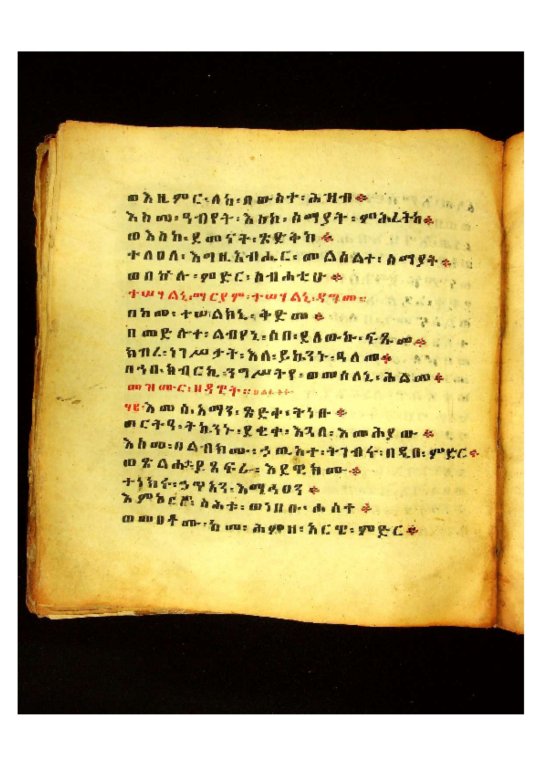 ወእዜምር፡ለከ፡በውስተ፡ሕዝብ።
እስመ፡ዓብየት፡እስከ፡ሰማያት፡ምሕረትከ።
ወእስከ፡ደመናት፡ጽድቅከ።
ተለዐለ፡እግዚአብሔር፡መልዕልተ፡ሰማያት።
ወበኵሉ፡ምድር፡ስብሐቲሁ።
ተሠሃልኒ፡ማርያም፡ተሠሃልኒ፡ዳግመ።
በከመ፡ተሠልክኒ፡ቅድመ።
በመድሎተ፡ልብየኒ፡ሶበ፡ደለውኩ፡ፍጹመ።
ክብረ፡ነገሥታት፡እለ፡ይኴንኑ፡ዓለመ።
በኀበ፡ክብርኪ፡ንግሥትየ፡ወመሰለኒ፡ሕልመ።
መዝሙር፡ዘዳዊት።
፶፯፡እመሰ፡አማን፡ጽድቀ፡ትነቡ።
ወርትዓ፡ትኴንኑ፡ደቂቀ፡እጓለ፡እመሕያው።
እስመ፡በልብክሙ፡ኃጢአተ፡ትገብሩ፡በዲበ፡ምድር።
ወጽልሑተ፡ይጸፍራ፡እደዊክሙ።
ተነክሩ፡ኃጥአን፡እማሕፀን።
እምከርሥ፡ስሕቱ፡ወነበቡ፡ሐሰተ።
ወመዐቶሙ፡ከመ፡ሕምዘ፡አርዌ፡ምድር።